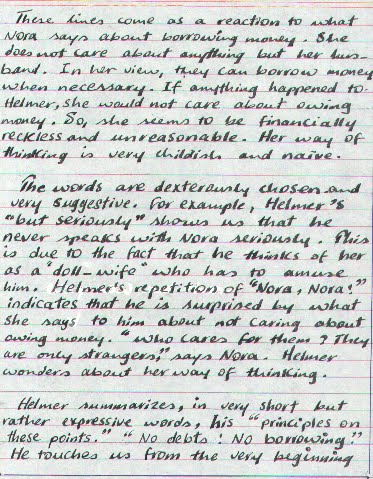 These lines come as a reaction to what
Nora says about borrowing money. She
does not care about anything but her hus-
band. In her view, they can borrow money
when necessary. If anything happened to
Helmer, she would not care about owing
money. So, she seems to be financially
reckless and unreasonable. Her way of
thinking is very childish and naive.
The words are dexterously chosen and
very suggestive. For example, Helmer's
"but seriously" shows us that he
never speaks with Nora seriously. This
is due to the fact that he thinks of her
as a "doll-wife" who has to amuse
him. Helmer's repetition of "Nora, Nora!"
indicates that he is surprised by what
she says to him about not caring about
owing money. "Who cares for them? They
are only strangers," says Nora. Helmer
wonders about her way of thinking.
Helmer summarizes, in very short but
rather expressive words, his "principles on
these points." "No debts! No borrowing!"
He touches us from the very beginning